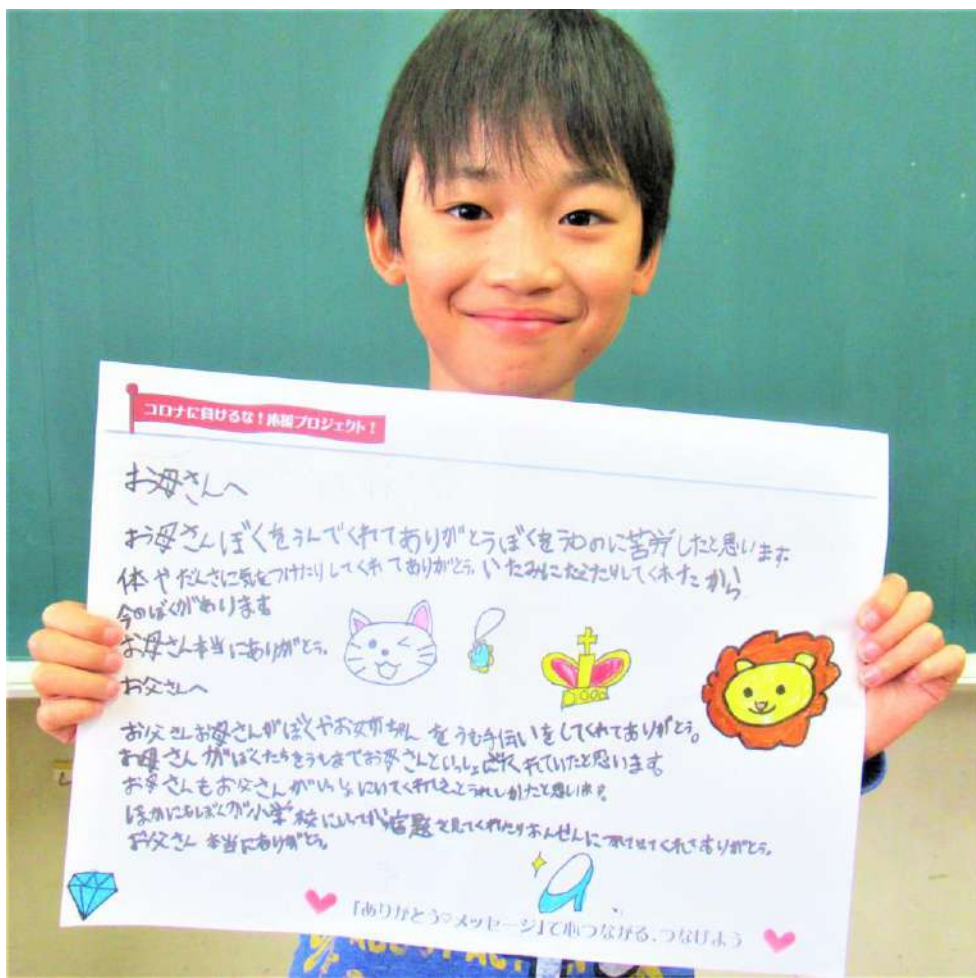 コロナに負けるな！応援プロジェクト！
お母さんへ
お母さんぼくをうんでくれてありがとうぼくをうむのに苦労したと思います
体やだんさに気をつけたりしてくれてありがとう。いたみにたえたりしてくれたから
今のぼくがあります
お母さん本当にありがとう。
お父さんへ
お父さんお母さんがぼくやお姉ちゃんをうむ手伝いをしてくれてありがとう。
お母さんがぼくたちをうむまでお母さんといっしょにいてくれていたと思います
お母さんもお父さんがいっしょにいてくれてとてもうれしかたと思います。
ほかにもぼくが小学校に 宿題を見てくれたりおんせんにつれてってくれてありがとう。
お父さん本当にありがとう。
「ありがとう♡メッセージ」で心つながる、つなげよう